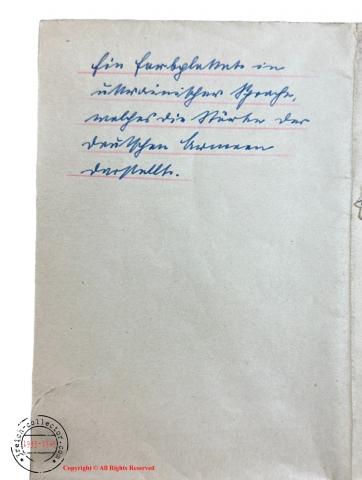 Ein Farbplakat in
ukrainischer Sprache,
welches die Stärke der
deutschen Armeen
darstellt.
reich-collector.com
1933-1945
Copyright © All Rights Reserved